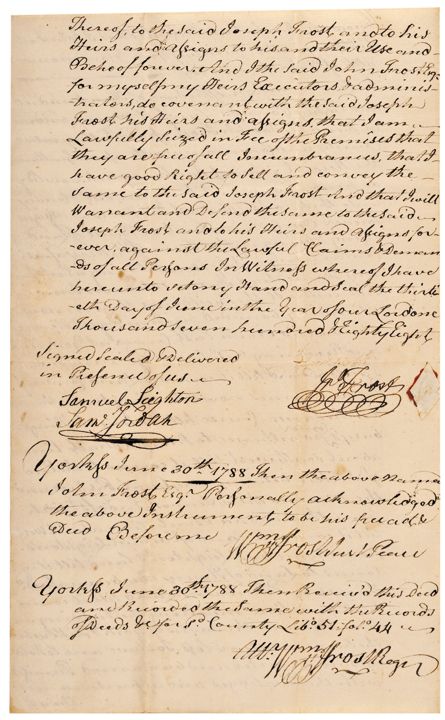 Thereof, to the said Joseph Frost and to his
Heirs and Assigns to his and their Use and
Behoof forever. And I the said John Frost Esqr
for myself my Heirs Executors & adminis-
trators, do covenant with the said Joseph
Frost his Heirs and assigns, that I am
Lawfully Seized in Fee of the Premises that
they are free of all Incumbrances, that I
have good Right to Sell and convey the
same to the said Joseph Frost And that I will
Warrant and Defend the same to the said
Joseph Frost and to his Heirs and assigns for-
ever, against the Lawful Claims & Deman
ds of all Persons In Witness whereof I have
hereunto set my Hand and Seal the thirti
eth Day of June in the Year of our Lord one
Thousand seven hundred & Eighty Eight
Signed Sealed & Delivered
in Presence of us
Samuel Leighton
Jno Frost
Saml Jordan
Yorkss June 30th 1788 Then the above Named
John Frost Esqr Personally acknowledged
the above Instrument to be his free act &
Deed Before me
Wm Frost Just Peace
Yorkss June 30th 1788 Then Received this Deed
and Recorded the Same with the Records
of Deeds &c for sd County Libo 51. folo 44
Att. Wm Frost Regr